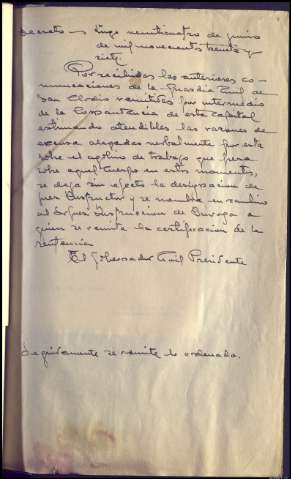 Decreto - Lugo veinticuatro de junio
de mil novecientos treinta y
siete.
Por recibidas las anteriores co-
municaciones de la Guardia Civil de
San Clodio remitidas por intermedio
de la Comandancia de esta capital
estimando atendibles las razones de
excusa alegadas verbalmente por esta
sobre el agobio de trabajo que pesa
sobre aquel Cuerpo en estos momentos,
se deja sin efecto la designación de
Juez Instructor y se nombra en cambio
al de Instruccion de Quiroga a
quien se remita la certificación de la
sentencia
El Gobernador Civil Presidente
Seguidamente se remite lo ordenado.